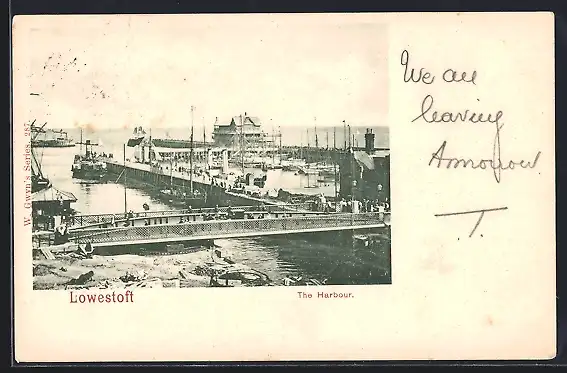 We are
leaving
Amorrow
T.
W. Gwyn's Series. 287.
Lowestoft
The Harbour.